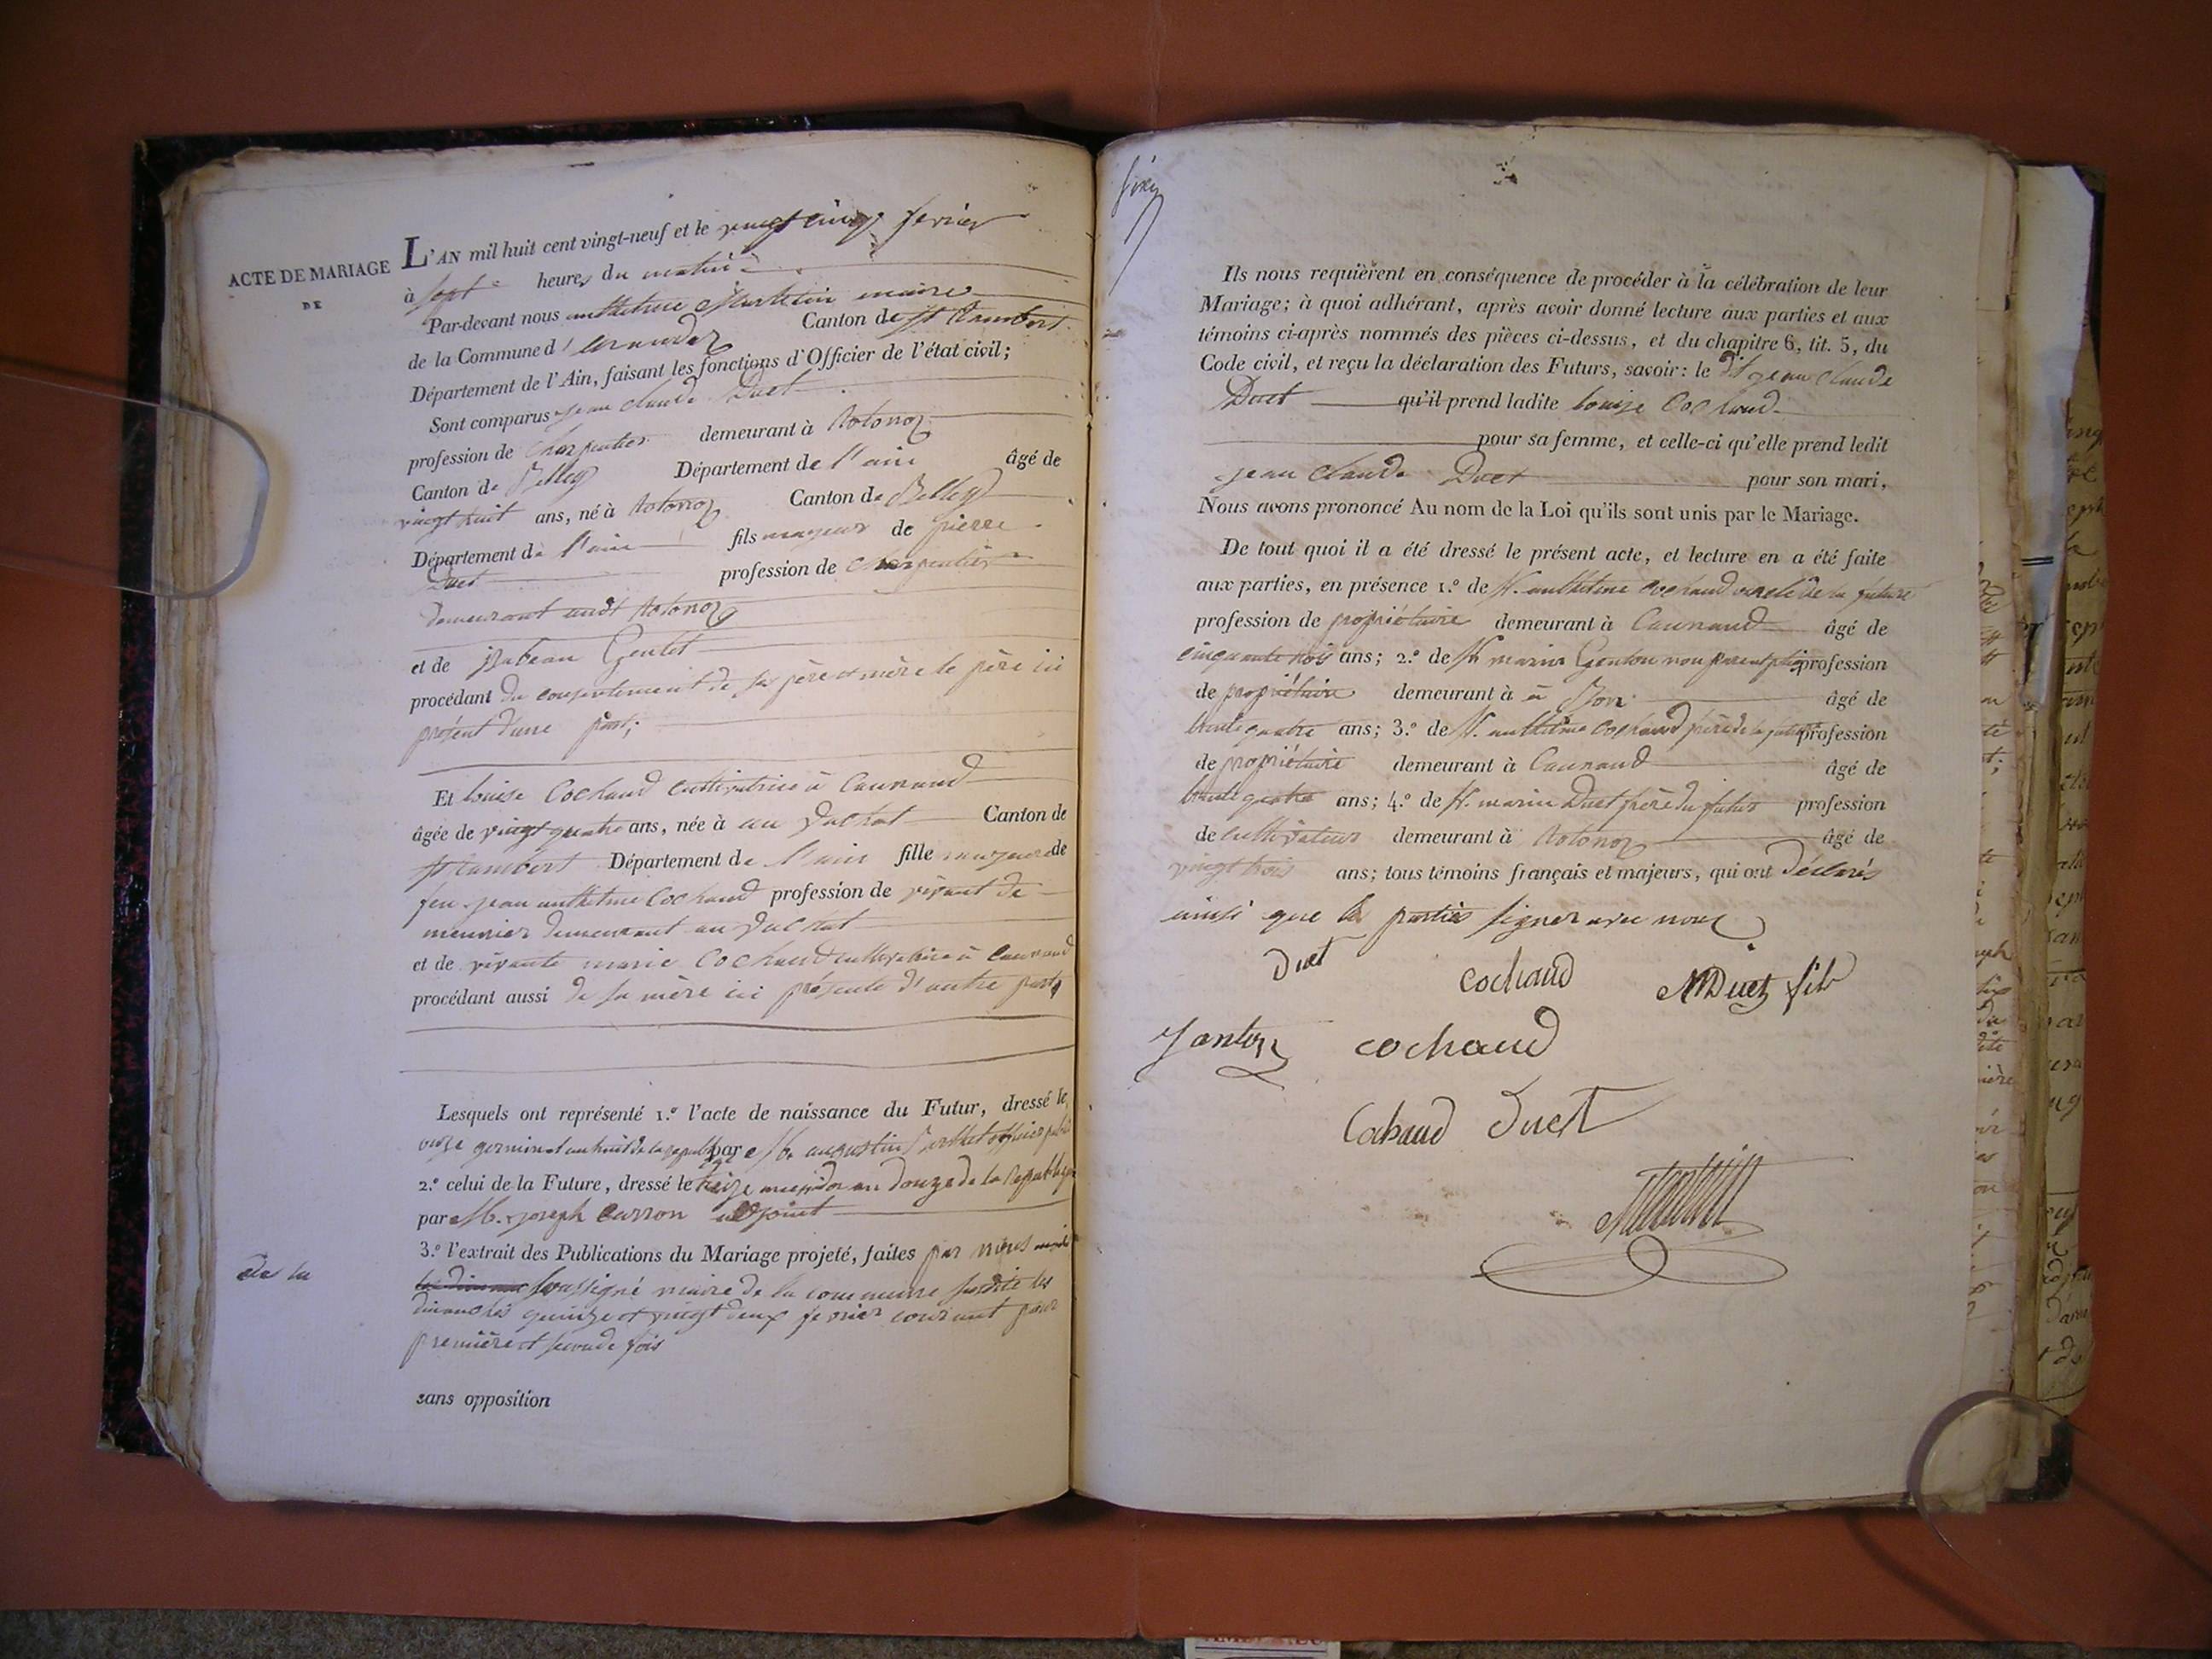 ACTE DE MARIAGE
DE
L'AN mil huit cent vingt-neuf et le vingt cinq fevrier
à sept heures du matin
Par-devant nous anthelme Martelin maire
de la Commune d'arandaz Canton de St Rambert
Département de l'Ain, faisant les fonctions d'Officier de l'état civil;
Sont comparus jean claude Duet
profession de charpentier demeurant à hotonoz
Canton de Belley Département de l'ain âgé de
vingt huit ans, né à hotonoz Canton de Belley
Département de l'ain fils majeur de pierre
Duet profession de charpentier
demeurant audt hotonoz
et de isabeau Genlet
procédant du consentement de ses père et mère le père ici
présent d'une part;
Et louise Cochaud cultivatrice à Caunaud
âgée de vingt quatre ans, née à au Duchat Canton de
St rambert Département de l'ain fille majeure de
feu jean anthelme Cochaud profession de vivant de
meunier demeurant au Duchat
et de vivante marie Cochaud cultivatrice à Caunaud
procédant aussi de sa mère ici présente d'autre part
Lesquels ont représenté 1.º l'acte de naissance du Futur, dressé le
onze germinal an huit de la republ par M. augustin Berthet officier public
2.º celui de la Future, dressé le treize messidor an douze de la Republique
par M. joseph Carron adjoint
3.º l'extrait des Publications du Mariage projeté, faites par nous
soussigné maire de la commune susdite les
dimanches quinze et vingt deux fevrier courant pour
première et seconde fois
sans opposition
Ils nous requièrent en conséquence de procéder à la célébration de leur
Mariage; à quoi adhérant, après avoir donné lecture aux parties et aux
témoins ci-après nommés des pièces ci-dessus, et du chapitre 6, tit. 5, du
Code civil, et reçu la déclaration des Futurs, savoir: le dit jean claude
Duet qu'il prend ladite louise Cochaud
pour sa femme, et celle-ci qu'elle prend ledit
jean claude Duet pour son mari,
Nous avons prononcé Au nom de la Loi qu'ils sont unis par le Mariage.
De tout quoi il a été dressé le présent acte, et lecture en a été faite
aux parties, en présence 1.º de Sr. anthelme Cochaud oncle de la future
profession de propriétaire demeurant à Caunaud âgé de
cinquante trois ans; 2.º de Sr marin Genton non parent profession
de propriétaire demeurant à à Jon âgé de
trente quatre ans; 3.º de Sr. anthelme Cochaud frère de la future profession
de propriétaire demeurant à Caunaud âgé de
trente quatre ans; 4.º de Sr. marin Duet frère du futur profession
de cultivateur demeurant à hotonoz âgé de
vingt trois ans; tous témoins français et majeurs, qui ont déclarés
ainsi que les parties signer avec nous
Duet cochaud M Duet fils
Janton cochaud
Cohaud Duet